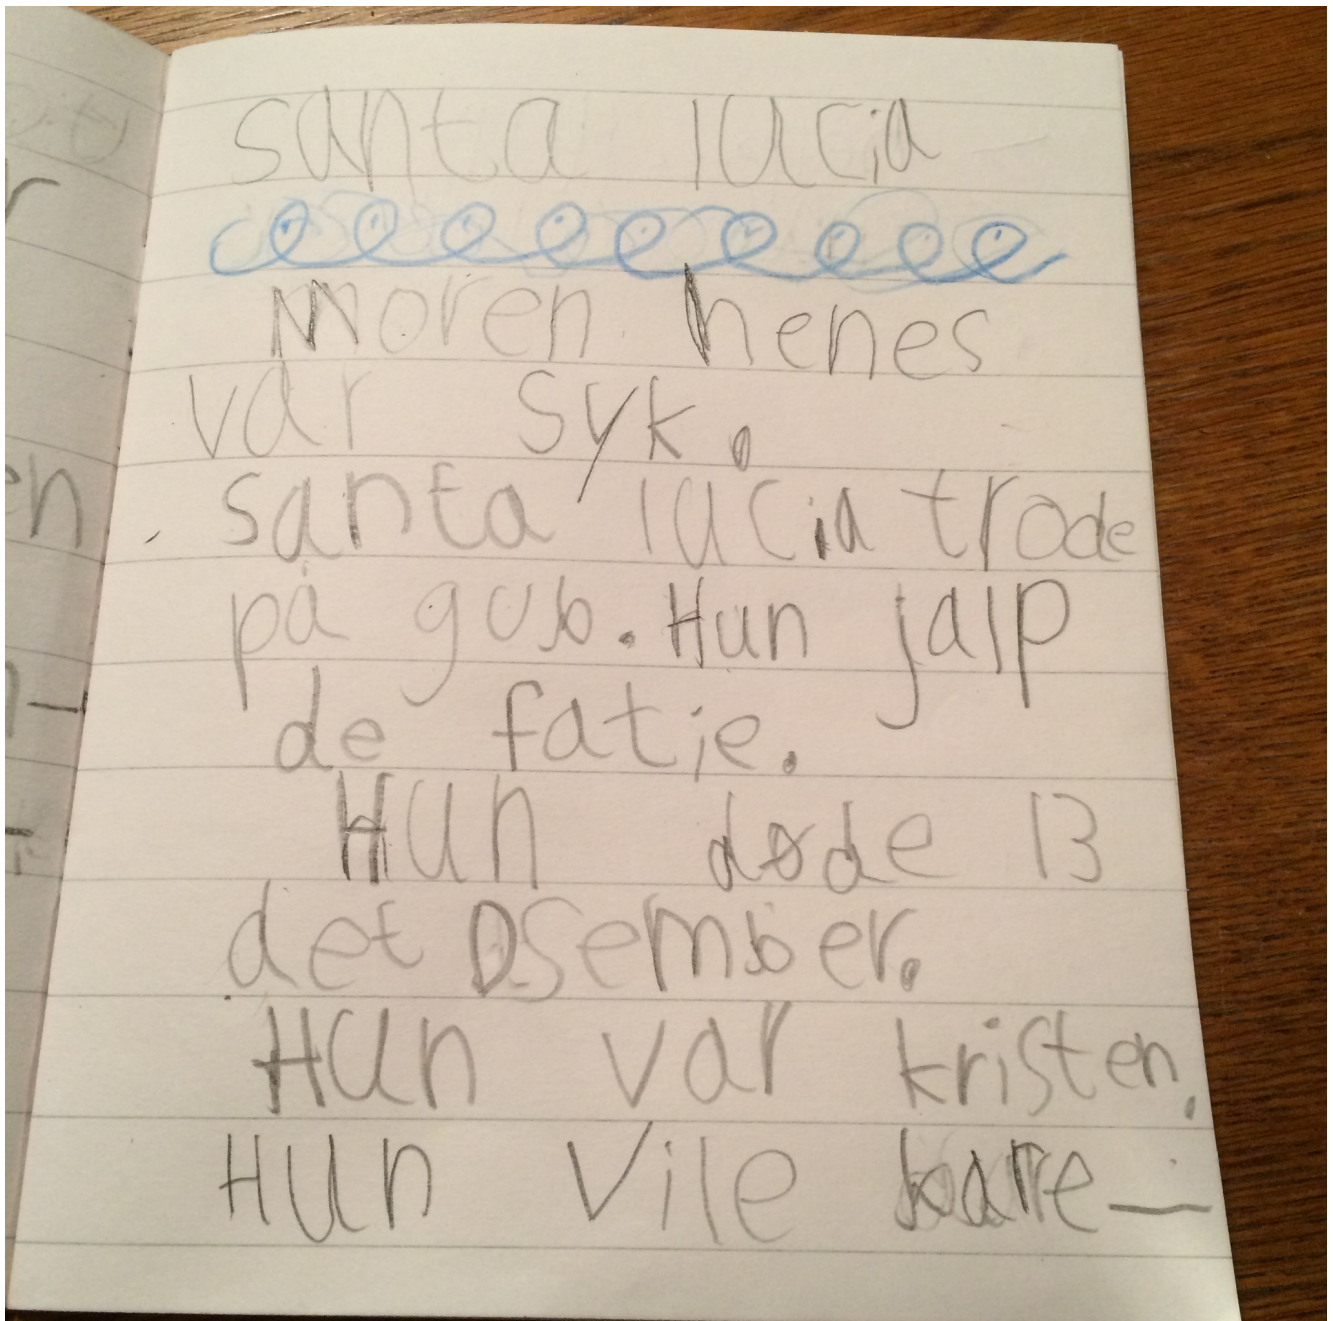 santa lucia
Moren henes
var syk.
santa lucia trode
på gub. Hun jalp
de fatie.
Hun døde 13
det Dsember.
Hun var kristen.
Hun vile bare—